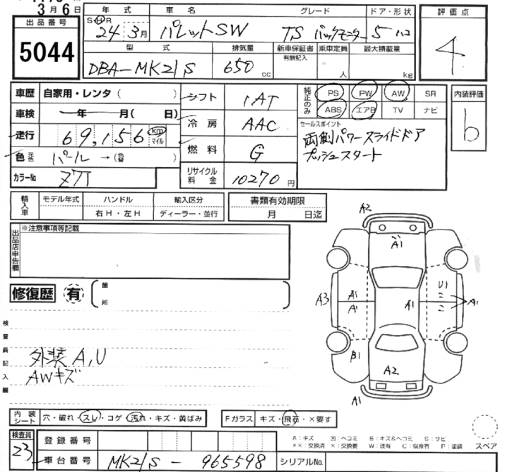 3月6日
年式 車名 グレード ドア・形状 評価点
出品番号
5044
SHR 24年3月 パレットSW TS バックモニター 5ハコ 4
型式 排気量 新車保証書 有無記入 車車定員 最大積載量
DBA-MK21S 650cc 人 kg
車歴 自家用・レンタ( )
車検 ー年ー月( 日)
走行 69,156 km マイル
色 パール→(替 )
カラーNo Z7T
シフト IAT
冷房 AAC
燃料 G
リサイクル料金 10270円
純正のみ PS PW AW SR
ABS エアB TV ナビ
内装評価 b
セールスポイント
両側パワースライドドア
プッシュスタート
輸入車 モデル年式 ハンドル 輸入区分
右H・左H ディーラー・並行
書類有効期限
月 日迄
出品店申告欄 ※注意事項等記載
修復歴 有 箇所
検査員記入欄
外装A,U
AWキズ
A2
A1
A3 A1 A1 A1 U1 A1
B1
A2
A1
内装シート 穴・破れ・スレ・コゲ・汚れ・キズ・黄ばみ
Fガラス キズ・飛石・×要す
A:キズ U:ヘコミ B:キズ&ヘコミ S:サビ
××:交換済 ×:要交換 W:波有 C:腐食 P:塗装
スペア
検査員 23
登録番号
車台番号 MK21S-965598
シリアルNo.